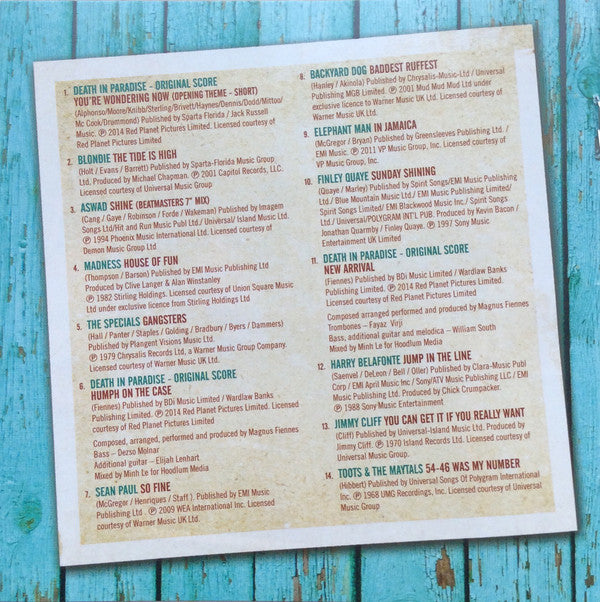 1. DEATH IN PARADISE - ORIGINAL SCORE
YOU'RE WONDERING NOW (OPENING THEME - SHORT)
(Alphonso/Moore/Knibb/Sterling/Brivett/Haynes/Dennis/Dodd/Mittoo/
Mc Cook/Drummond) Published by Sparta Florida / Jack Russell
Music. ℗ 2014 Red Planet Pictures Limited. Licensed courtesy of
Red Planet Pictures Limited
2. BLONDIE THE TIDE IS HIGH
(Holt / Evans / Barrett) Published by Sparta-Florida Music Group
Ltd. Produced by Michael Chapman. ℗ 2001 Capitol Records, LLC.
Licensed courtesy of Universal Music Group
3. ASWAD SHINE (BEATMASTERS 7" MIX)
(Cang / Gaye / Robinson / Forde / Wakeman) Published by Imagem
Songs Ltd/Hit and Run Music Publ Ltd./ Universal/ Island Music Ltd.
℗ 1994 Phoenix Music International Ltd. Licensed courtesy of
Demon Music Group Ltd
4. MADNESS HOUSE OF FUN
(Thompson / Barson) Published by EMI Music Publishing Ltd
Produced by Clive Langer & Alan Winstanley
℗ 1982 Stirling Holdings. Licensed courtesy of Union Square Music
Ltd under exclusive licence from Stirling Holdings Ltd
5. THE SPECIALS GANGSTERS
(Hall / Panter / Staples / Golding / Bradbury / Byers / Dammers)
Published by Plangent Visions Music Ltd.
℗ 1979 Chrysalis Records Ltd, a Warner Music Group Company.
Licensed courtesy of Warner Music UK Ltd.
6. DEATH IN PARADISE - ORIGINAL SCORE
HUMPH ON THE CASE
(Fiennes) Published by BDi Music Limited / Wardlaw Banks
Publishing Limited. ℗ 2014 Red Planet Pictures Limited. Licensed
courtesy of Red Planet Pictures Limited
Composed, arranged, performed and produced by Magnus Fiennes
Bass – Dezso Molnar
Additional guitar – Elijah Lenhart
Mixed by Minh Le for Hoodlum Media
7. SEAN PAUL SO FINE
(McGregor / Henriques / Staff ). Published by EMI Music
Publishing Ltd . ℗ 2009 WEA International Inc. Licensed
courtesy of Warner Music UK Ltd.
8. BACKYARD DOG BADDEST RUFFEST
(Hanley / Akinola) Published by Chrysalis-Music-Ltd / Universal
Publishing MGB Limited. ℗ 2001 Mud Mud Mud Ltd under
exclusive licence to Warner Music UK Ltd. Licensed courtesy of
Warner Music UK Ltd.
9. ELEPHANT MAN IN JAMAICA
(McGregor / Bryan) Published by Greensleeves Publishing Ltd. /
EMI Music. ℗ 2011 VP Music Group, Inc. Licensed courtesy of
VP Music Group, Inc.
10. FINLEY QUAYE SUNDAY SHINING
(Quaye / Marley) Published by Spirit Songs/EMI Music Publishing
Ltd / Blue Mountain Music Ltd / EMI Music Publishing Limited/
Spirit Songs Limited/ EMI Blackwood Music Inc./ Spirit Songs
Ltd / Universal/POLYGRAM INT'L PUB. Produced by Kevin Bacon /
Jonathan Quarmby / Finley Quaye. ℗ 1997 Sony Music
Entertainment UK Limited
11. DEATH IN PARADISE - ORIGINAL SCORE
NEW ARRIVAL
(Fiennes) Published by BDi Music Limited / Wardlaw Banks
Publishing Limited. ℗ 2014 Red Planet Pictures Limited. Licensed
courtesy of Red Planet Pictures Limited
Composed arranged performed and produced by Magnus Fiennes
Trombones – Fayaz Virji
Bass, additional guitar and melodica – William South
Mixed by Minh Le for Hoodlum Media
12. HARRY BELAFONTE JUMP IN THE LINE
(Saenvel / DeLeon / Bell / Oller) Published by Clara-Music Publ
Corp / EMI April Music Inc / Sony/ATV Music Publishing LLC / EMI
Music Publishing Limited. Produced by Chick Crumpacker.
℗ 1988 Sony Music Entertainment
13. JIMMY CLIFF YOU CAN GET IT IF YOU REALLY WANT
(Cliff) Published by Universal-Island Music Ltd. Produced by
Jimmy Cliff. ℗ 1970 Island Records Ltd. Licensed courtesy of
Universal Music Group.
14. TOOTS & THE MAYTALS 54-46 WAS MY NUMBER
(Hibbert) Published by Universal Songs Of Polygram International
Inc. ℗ 1968 UMG Recordings, Inc. Licensed courtesy of Universal
Music Group